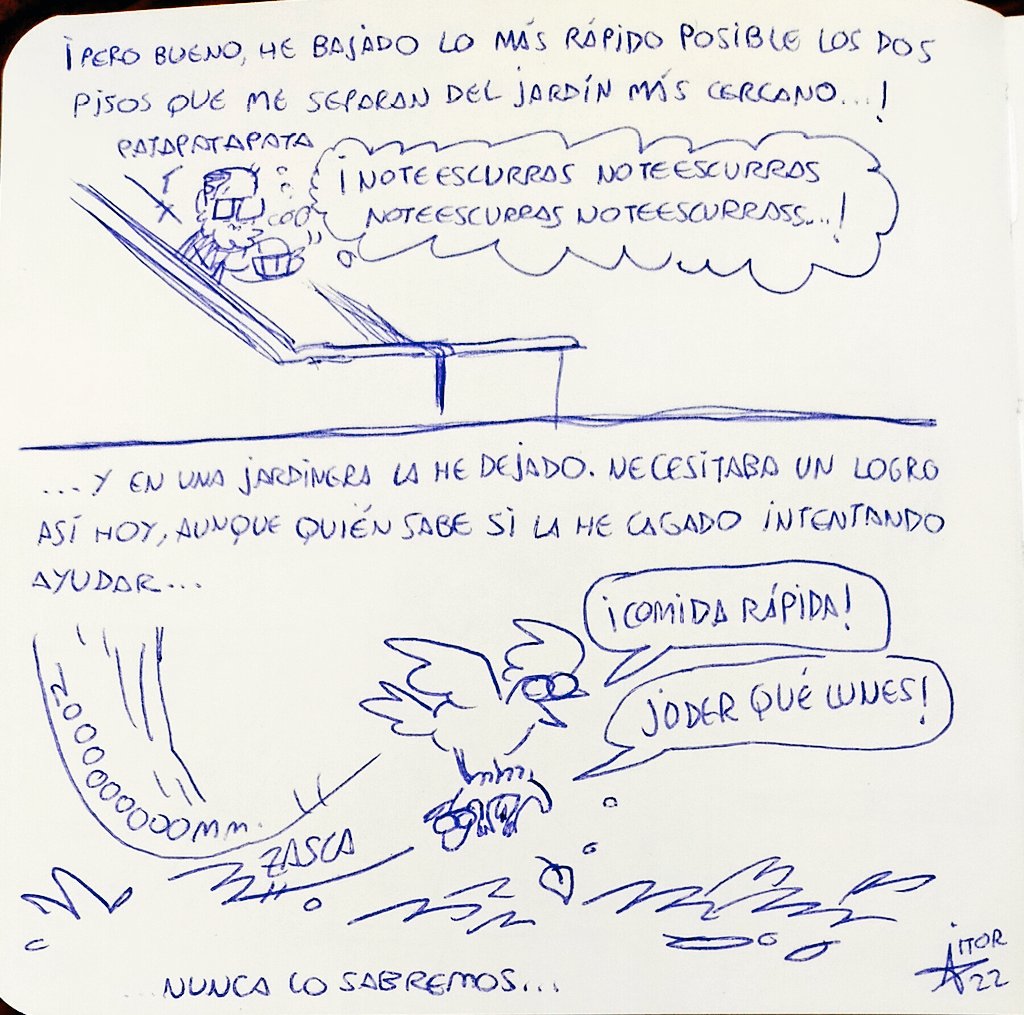 ¡PERO BUENO, HE BAJADO LO MÁS RÁPIDO POSIBLE LOS DOS
PISOS QUE ME SEPARAN DEL JARDÍN MÁS CERCANO...!
PATAPATAPATA
¡NOTEESCURRAS NOTEESCURRAS
NOTEESCURRAS NOTEESCURRASS...!
...Y EN UNA JARDINERA LA HE DEJADO. NECESITABA UN LOGRO
ASÍ HOY, AUNQUE QUIÉN SABE SI LA HE CAGADO INTENTANDO
AYUDAR...
¡COMIDA RÁPIDA!
¡JODER QUÉ LUNES!
ZOOOOOOOOOOMM.
ZASCA
...NUNCA LO SABREMOS...
AITOR
22